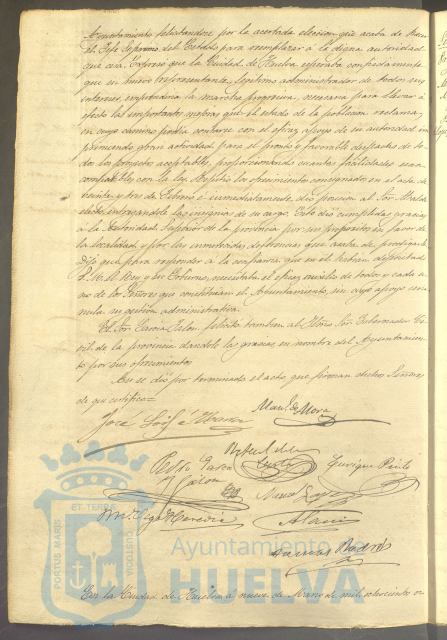 Ayuntamiento felicitandose por la acertada eleccion que acaba de hacer
el Jefe Supremo del Estado para reemplazar á la digna autoridad
que cesa. Expresó que la Ciudad de Huelva esperaba confiadamente
que su nuevo representante, legitimo administrador de todos sus
intereses, emprenderia la marcha progresiva, necesaria para llevar á
efecto las importantes mejoras que el estado de la poblacion reclama,
en cuyo camino podia contarse con el eficaz apoyo de su autoridad im-
primiendo gran actividad para el pronto y favorable despacho de to-
dos los proyectos aceptables, proporcionando cuantas facilidades sean
compatibles con la ley. Repitió los ofrecimientos consignados en el acta de
veinte y tres de Febrero é inmediatamente dió posesion al Sor. Alcalde
electo entregandole las insignias de su cargo. Este dió cumplidas gracias
á la Autoridad Superior de la provincia por sus propositos en favor de
la localidad y por las inmerecidas deferencias que acaba de prodigarle.
Dijo que para responder á la confianza que en él habian depositado
S. M. el Rey y su Gobierno, necesitaba el eficaz auxilio de todos y cada
uno de los Señores que constituian el Ayuntamiento, sin cuyo apoyo seria
nula su gestion administrativa.
El Sor. Garcia felicitó tambien al Sor. Gobernador Ci-
vil de la provincia dandole las gracias en nombre del Ayuntamien-
to por sus ofrecimientos.
Asi se dió por terminado el acto que firman dichos Señores
de que certifico=
José
Man. de Mora
Rafael de la
Pedro Garcia
Enrique Pinto
Manuel
ET TERRÆ
PORTUS MARIS
CUSTODIA
Ayuntamiento de
HUELVA
En la Ciudad de Huelva á nueve de Marzo de mil ochocientos